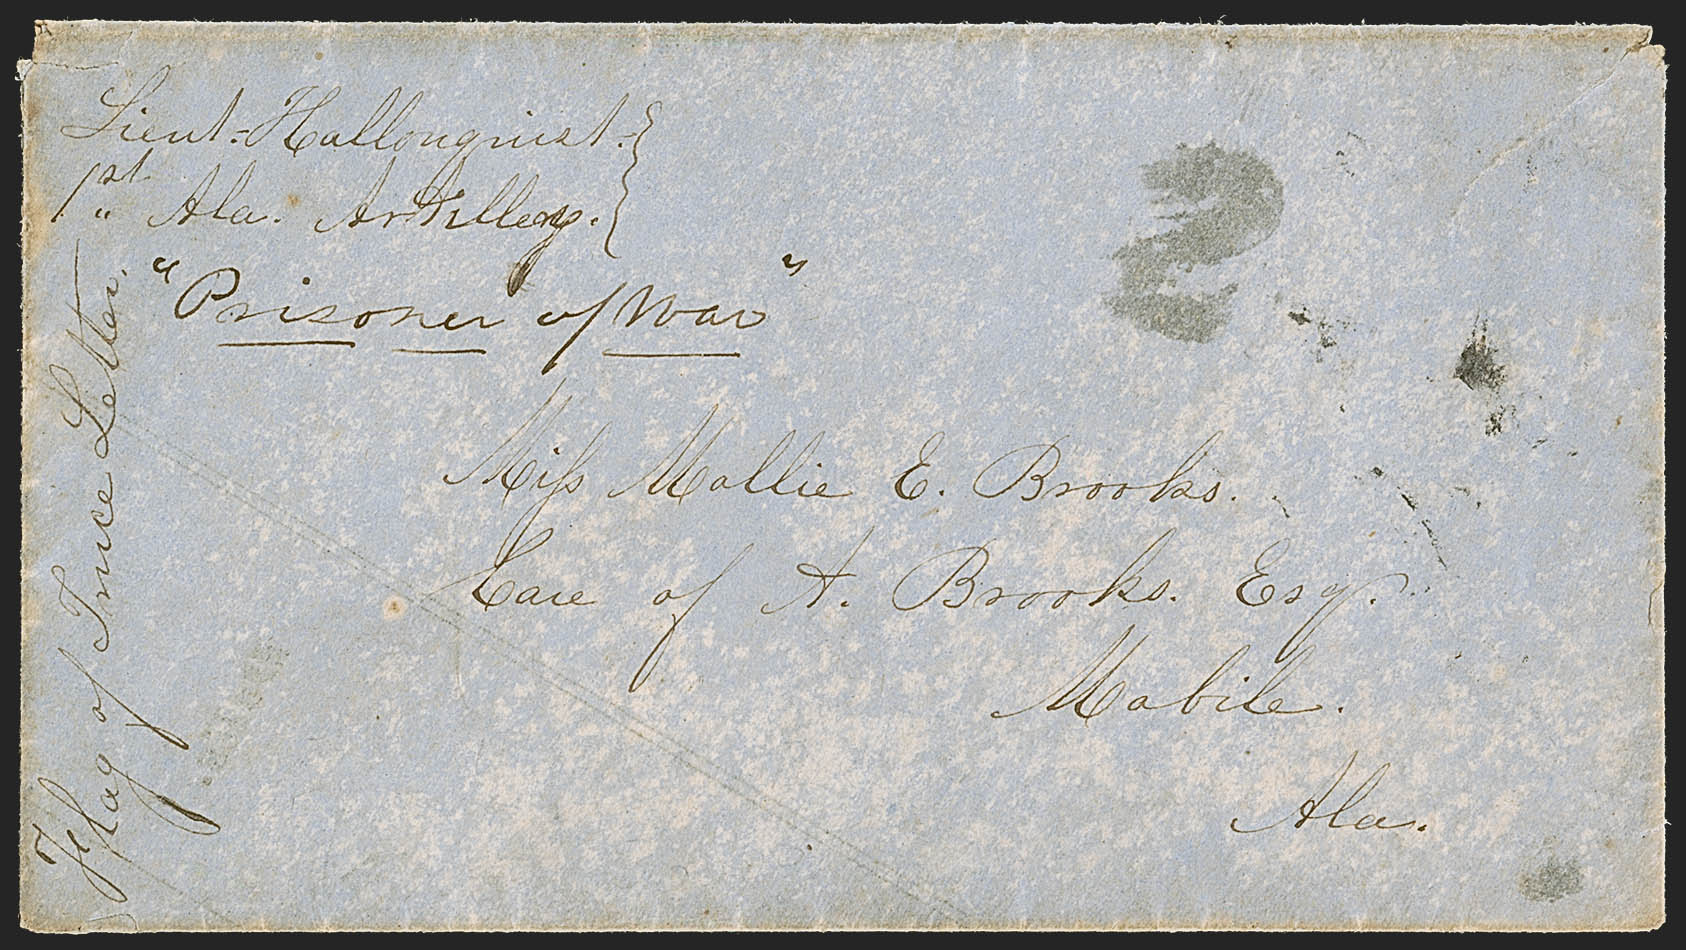 Lieut. Hallonquist.
1st " Ala. Artillery.
"Prisoner of War"
Flag of Truce Letter.
2
Miss Mollie E. Brooks.
Care of A. Brooks. Esq.
Mobile.
Ala.